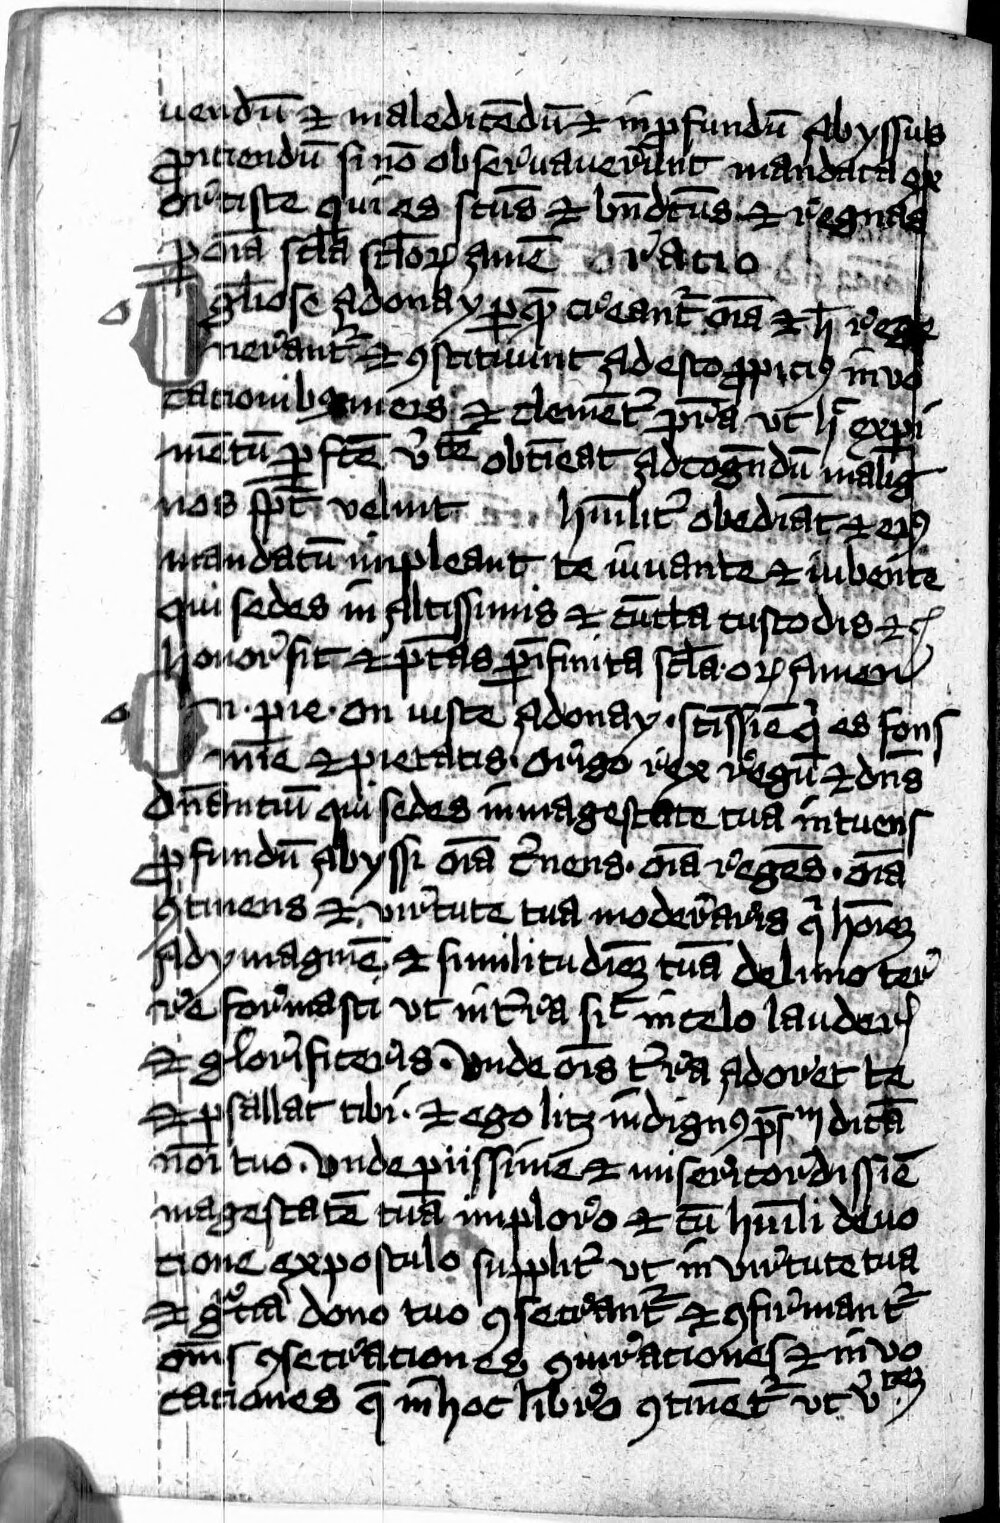 uendū & maledicēdū & in ꝓfundū abyssus
ꝓiciendū si nō obseruauerint mandata ex
orciste qui es scūs & bn̄dcūs & regnas
ꝑ oīa scl̄a scl̄oꝝ amē oratio
O gl̄iose adonay ꝑ quē creant̉ oīa & h̄ rege
nerant̉ & ꝯstituunt adesto ꝓpicius inuo
cationibus meis & clemēt̉ p̄sta ut h̄ expi
mētū ꝑfcē ūtē obtīeat ad cogn̄dū malig
nos sp̄s velint hūilit̉ obediāt & eius
mandatū impleant te iuuante & iubente
qui sedes in altissimis & cūcta custodis &
honor sit & ptās ꝑ īfinita scl̄a.oꝝ amen
O n. pie. on iuste adonay. scissīe qui es fons
mīe & pietatis. origo rex regū & dn̄s
dn̄antiū qui sedes in magestate tua intuens
ꝓfundū abyssi oīa c̄nens. oīa regēs. oīa
ꝯtinens & virtute tua moderaris qui hoīeꝫ
ad ymaginē & similitudīeꝫ tuā de limo ter
re formasti ut in t̄ra sic in celo lauderis
& glorificeris. Vnde oīs t̄ra adoret te
& psallat tibi. & ego licꝫ indignus dicā
noī tuo. Vnde piissime & misericordissīe
magestatē tuā imploro & cū hūili deuo
cione expostulo supplit̉ ut in virtute tua
& gr̄a dono tuo ꝯsecrant̉ & ꝯfirmant̉
om̄s ꝯsecrationes ꝯiurationes & inuo
cationes q̄ in hoc libro ꝯtinēt̉ ut v̄teꝫ